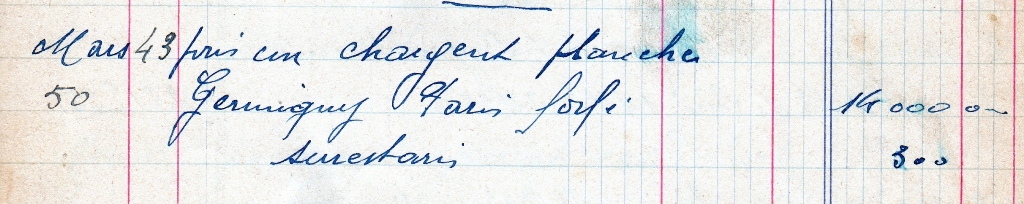 Mars 43 pris un chargent planches
50 Germigny Paris forfi 14 000 00
surestaris 300